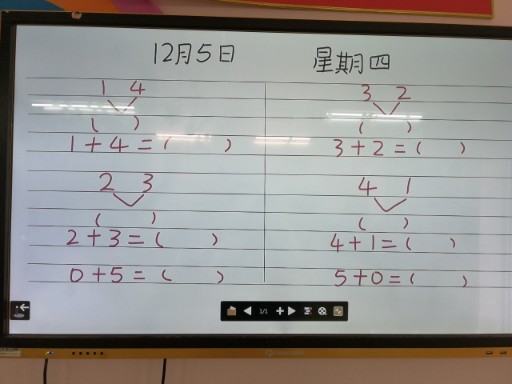 12月5日 星期四
1 4
( )
1+4=( )
2 3
( )
2+3=( )
0+5=( )
3 2
( )
3+2=( )
4 1
( )
4+1=( )
5+0=( )
1/1